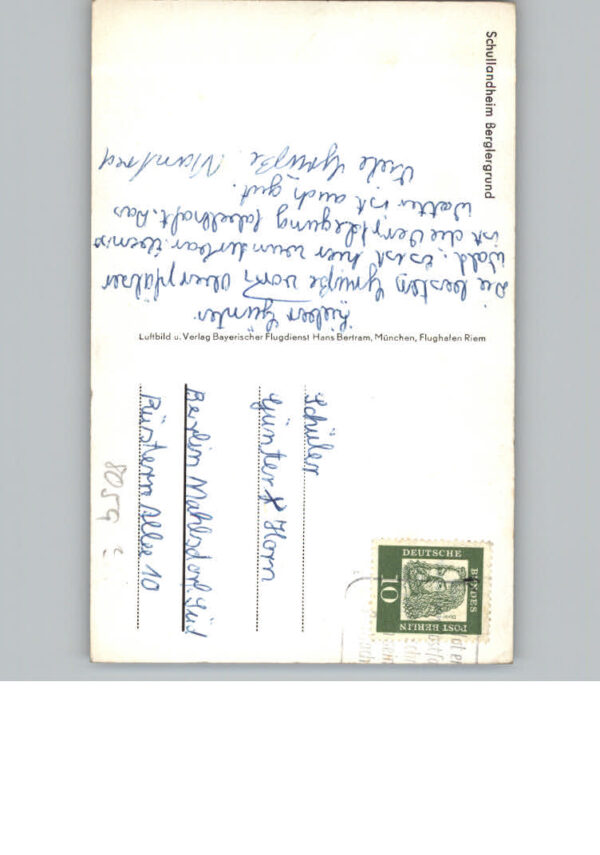 Schullandheim Berglergrund
Lieber Günter
Die besten Grüße vom Oberpfälzer
Wald. Es ist hier wunderbar. Ebenso
ist die Verpflegung fabelhaft. Das
Wetter ist auch gut.
Viele Grüße Manfred
Luftbild u. Verlag Bayerischer Flugdienst Hans Bertram, München, Flughafen Riem
DEUTSCHE BUNDES POST BERLIN
10
Schüler
Günter Horn
Berlin Mahlsdorf. Süd
Rüstern Allee 10
8059